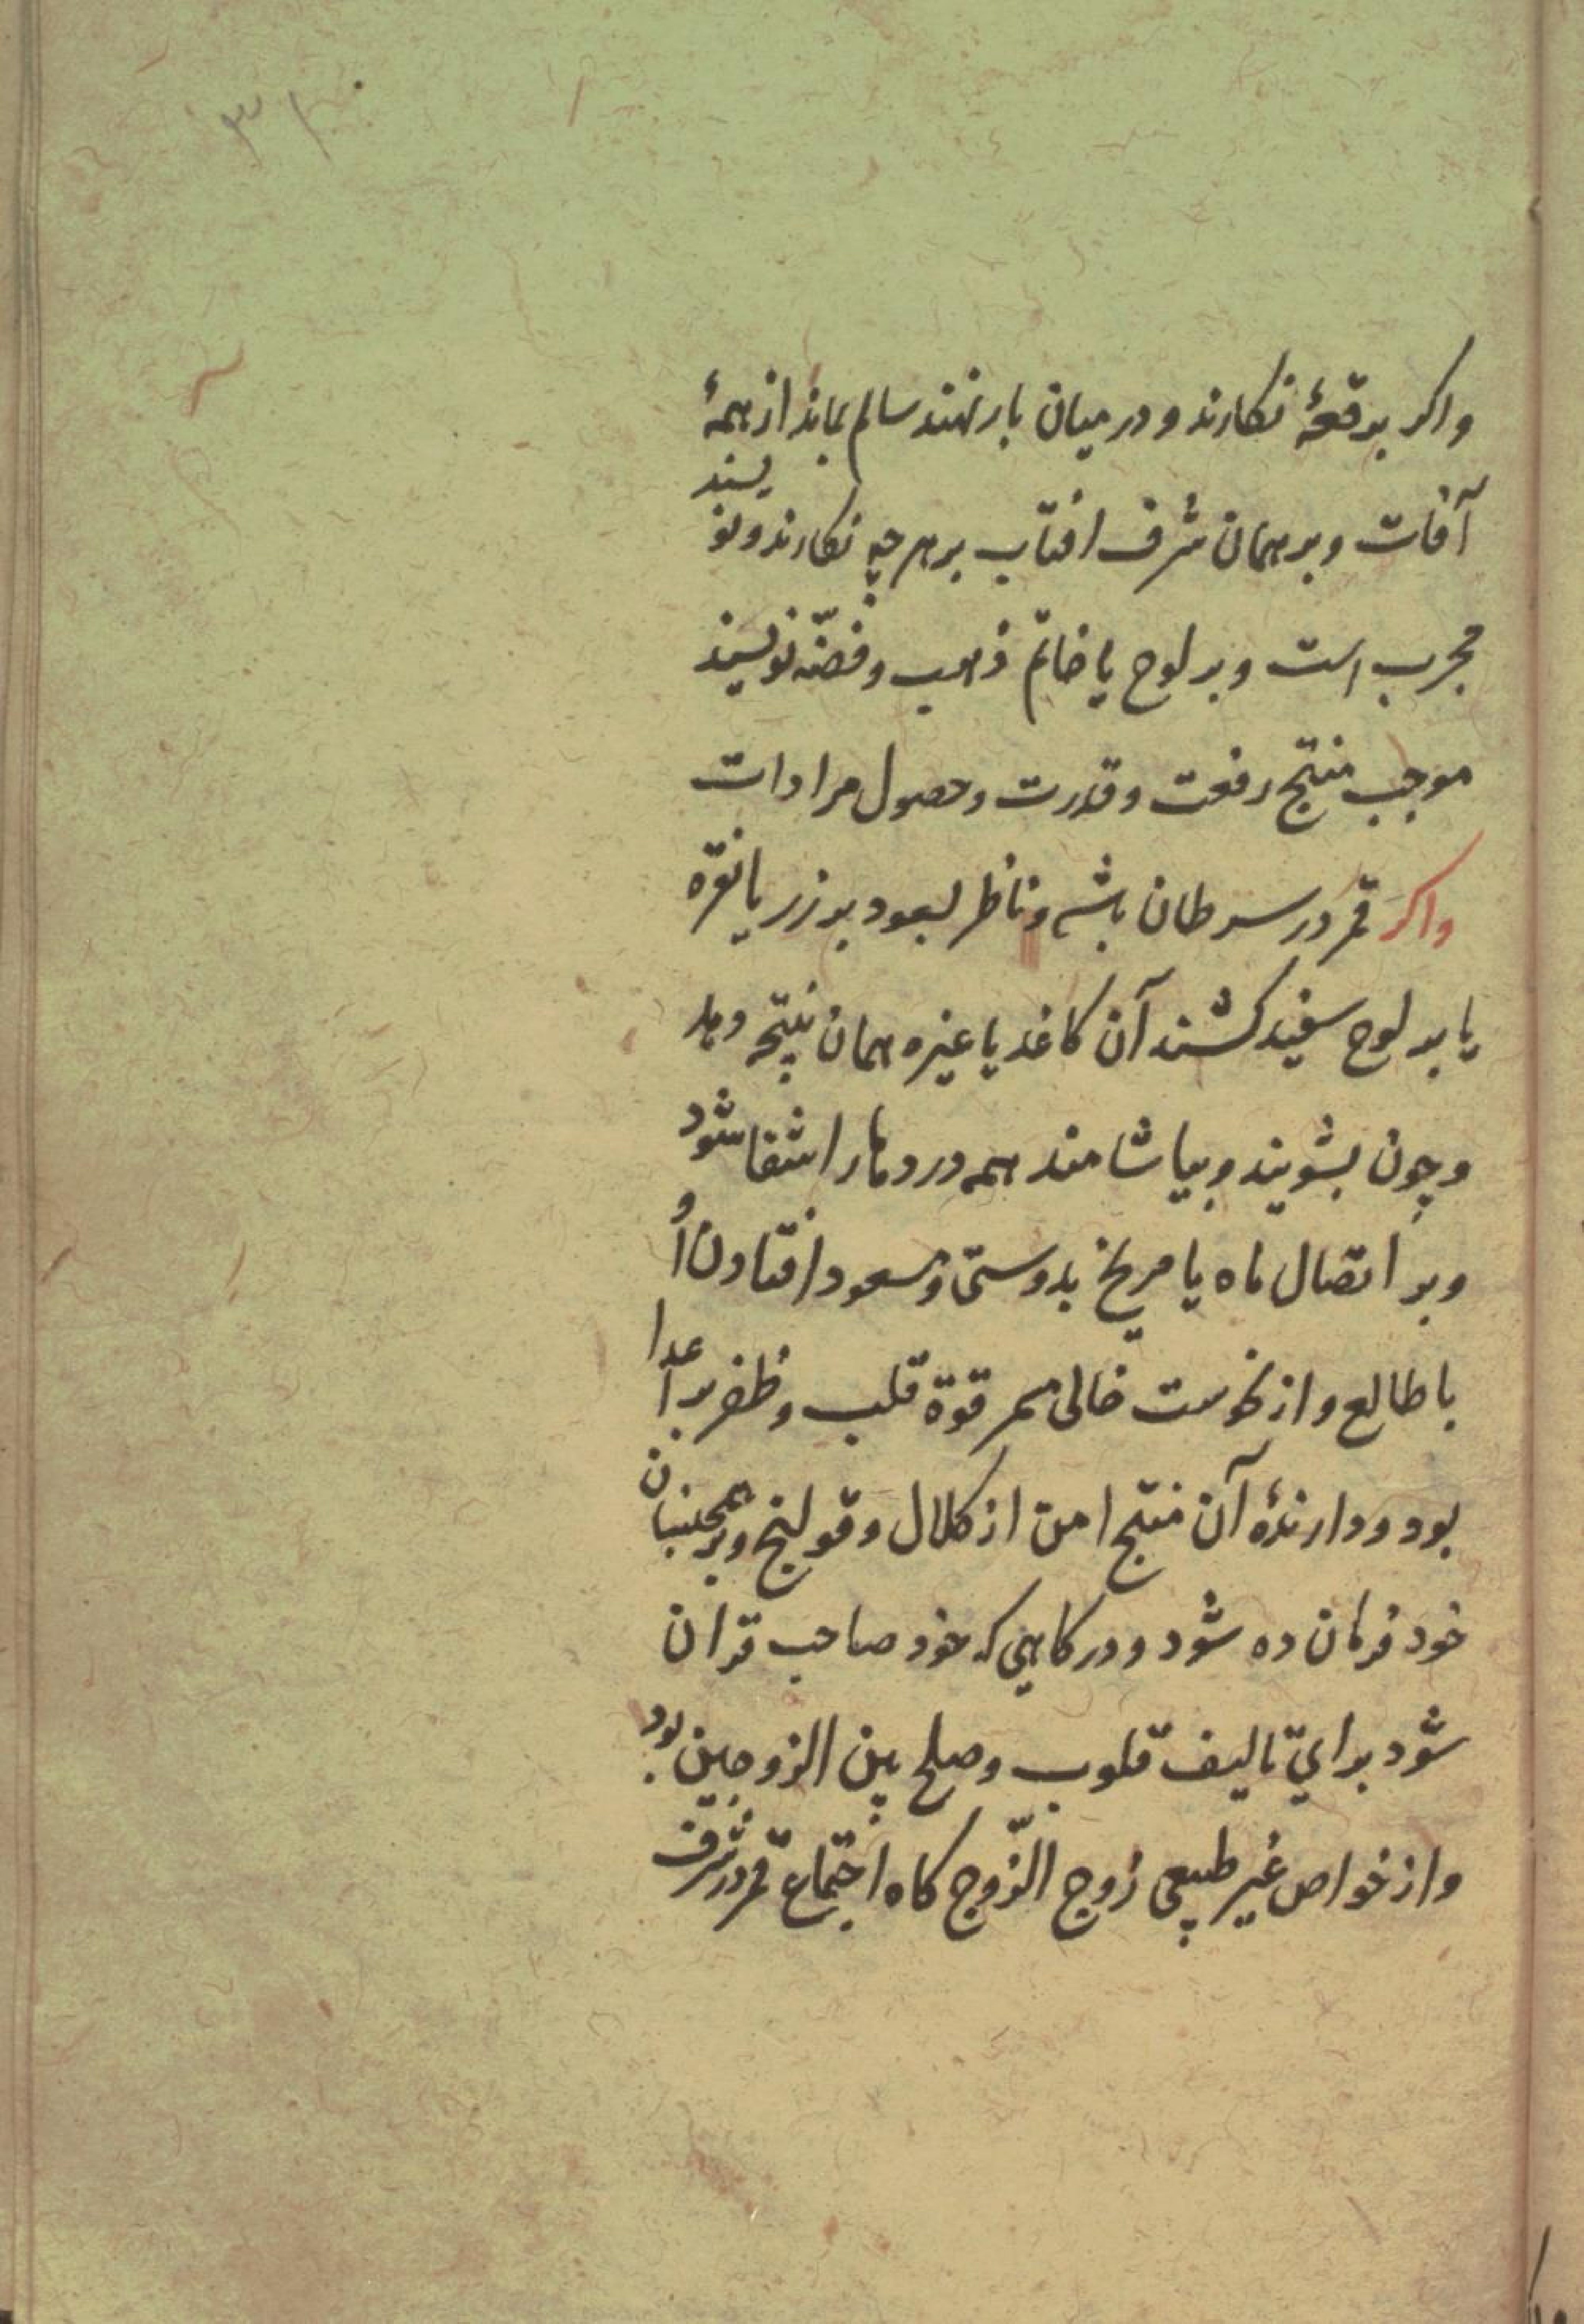 واكر برقعهٔ نكارند و در ميان بار نهند سالم بماند از همهٔ
آفات و بر همان شرف افتاب بر هر چه نكارند و نويسند
مجرب است و بر لوح يا خاتم ذهب و فضّه نويسند
موجب منتج رفعت و قدرت و حصول مرادات
واكر قمر در سرطان باشد و ناظر بسعود بر زر يا نقره
يا بر لوح سفيد كشند آن كاغد يا غيره همان نتيجه دهد
و چون بشويند و بياشامند همه دردها را شفا شود
و بر اتصال ماه يا مريخ بدوستى و مسعود افتادن اُو
با طالع و از نحوست خالى قوة قلب و ظفر بر اعدا
بود و دارندهٔ آن منتج امن از كلال و قولنج و بر همجنسان
خود فرمان ده شود و در كاهي كه خود صاحب قران
شود براي تاليف قلوب و صلح بين الزوجين بود
و از خواص غير طبيعى زوج الزّوج كاه اجتماع قمر در شرف